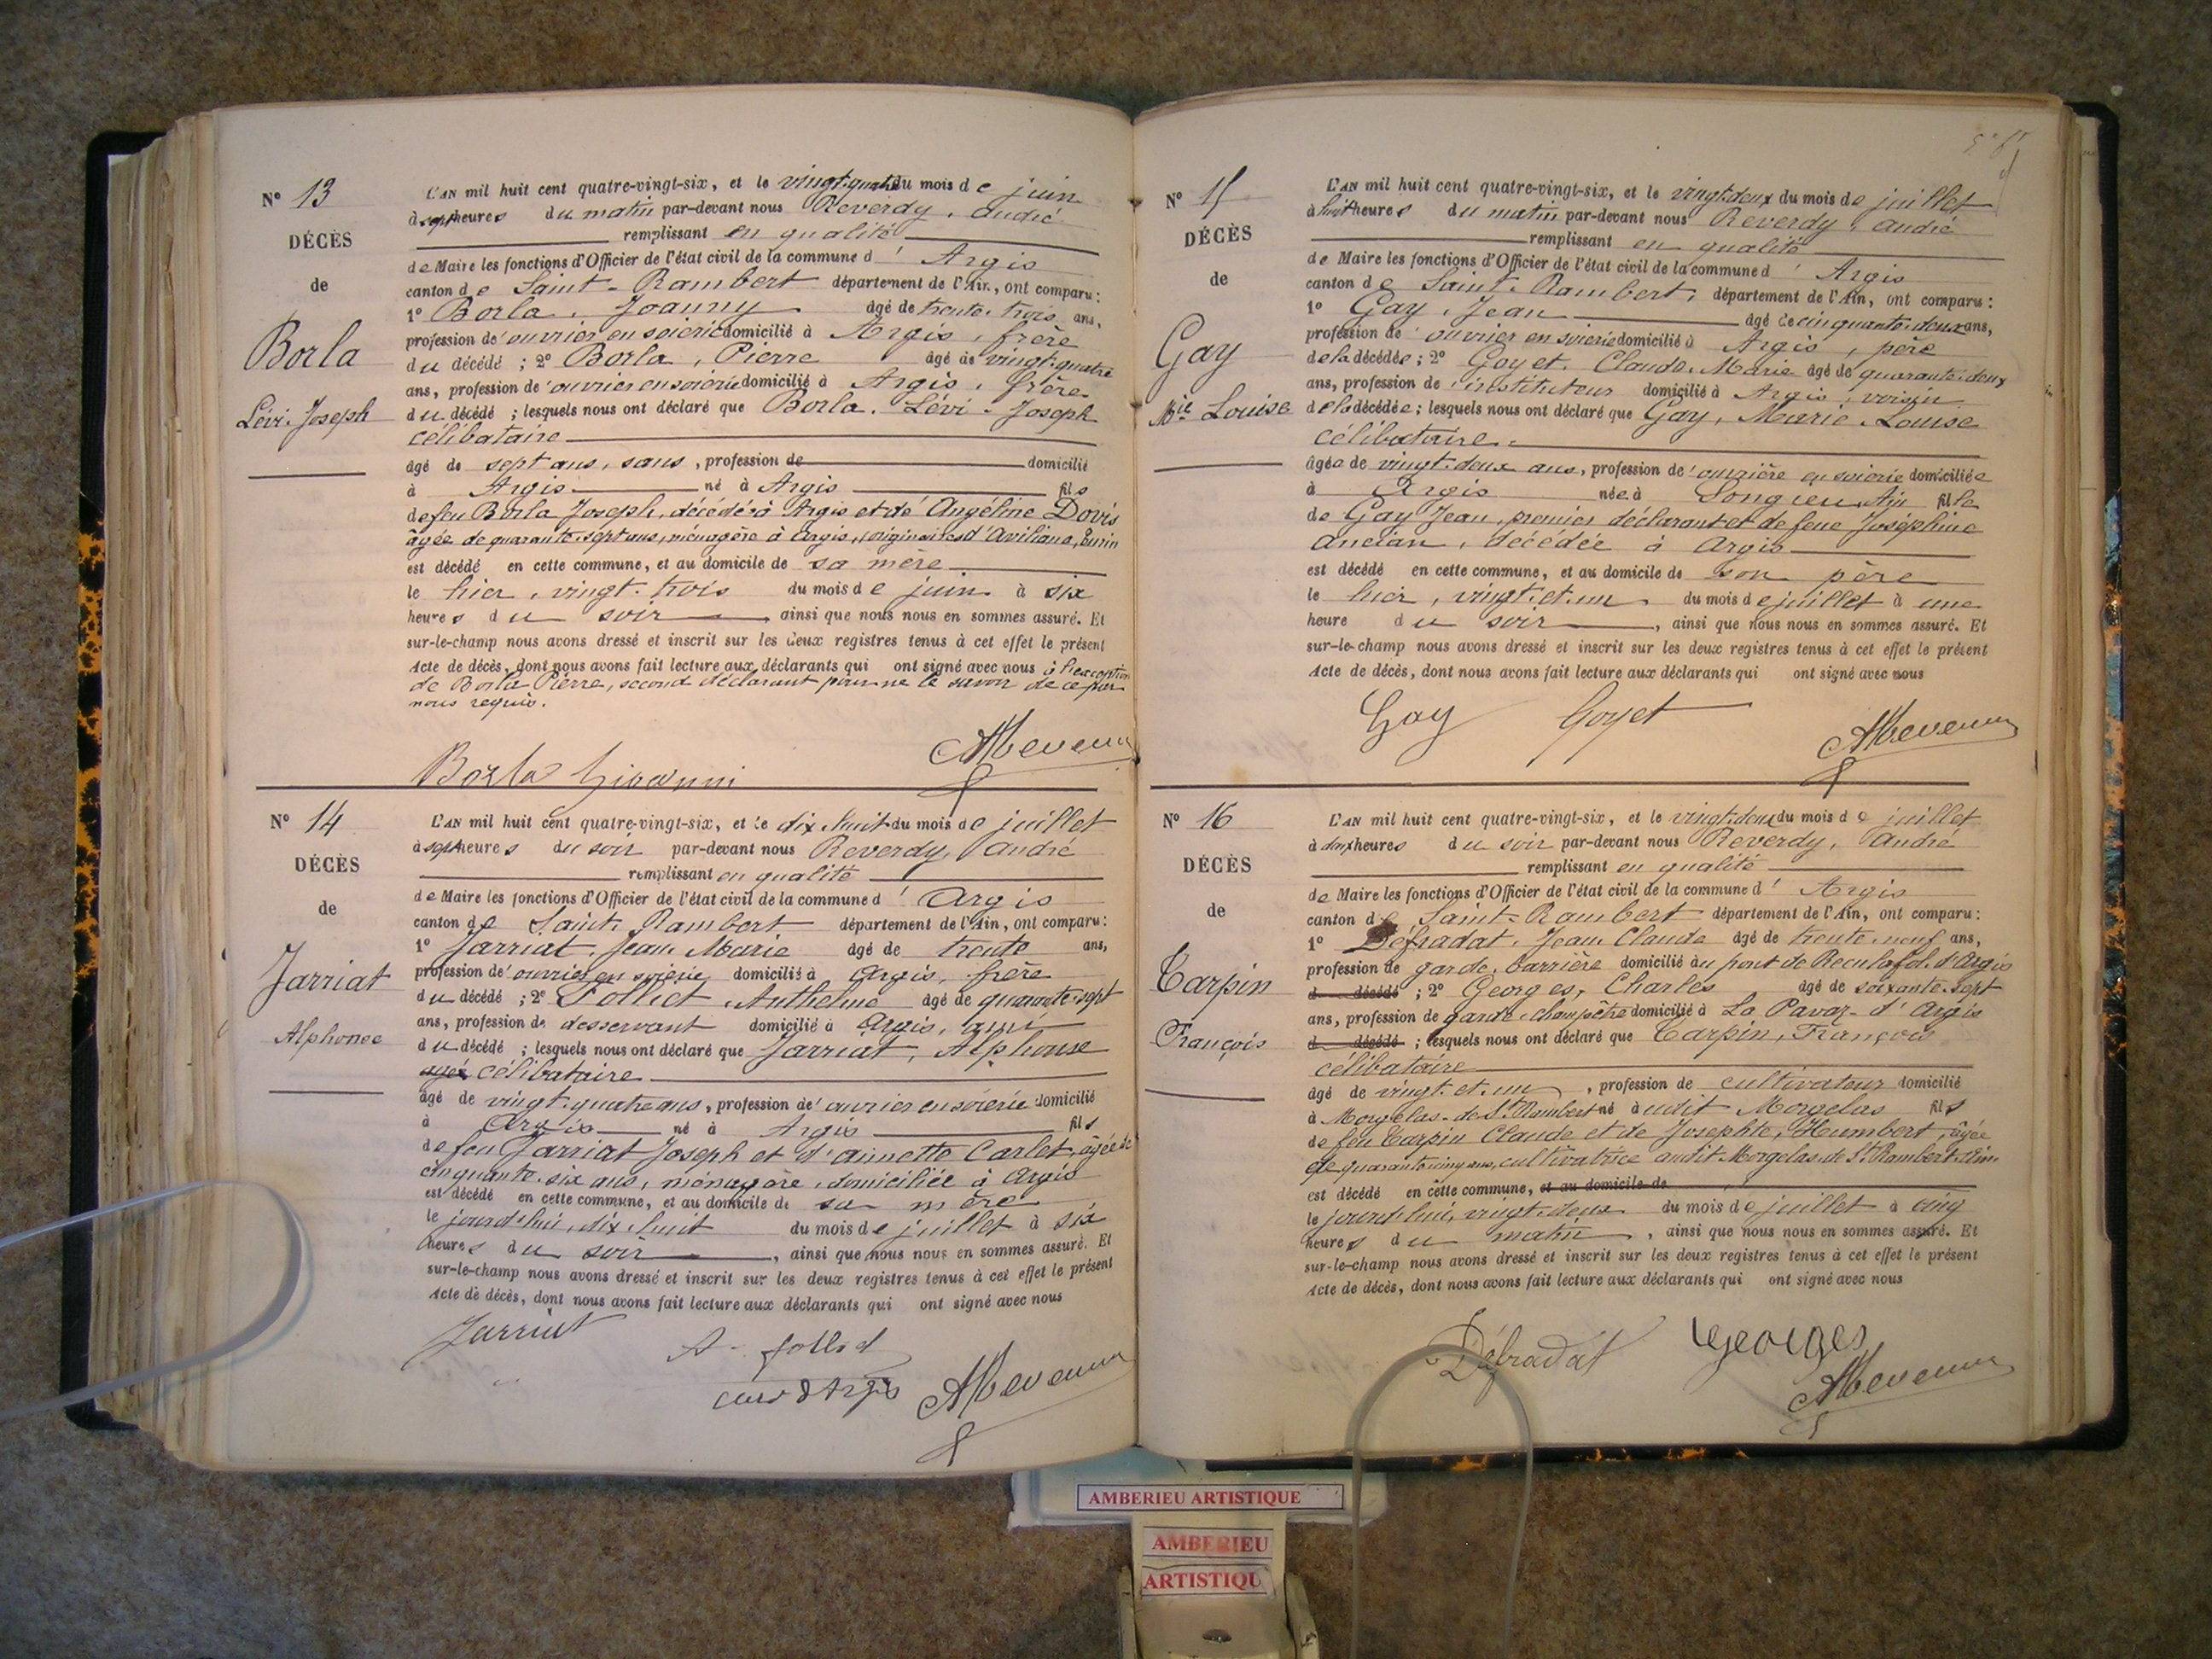 N° 13
DÉCÈS
de
Borla
Lévi-Joseph
L'AN mil huit cent quatre-vingt-six, et le vingt-quatre du mois de juin
à sept heures du matin par-devant nous Reverdy, André
remplissant en qualité
de Maire les fonctions d'Officier de l'état civil de la commune d'Argis
canton de Saint-Rambert département de l'Ain, ont comparu:
1° Borla, Joanny âgé de trente-trois ans,
profession de ouvrier en soierie domicilié à Argis, frère
du décédé ; 2° Borla, Pierre âgé de vingt-quatre
ans, profession de ouvrier en soierie domicilié à Argis, frère
du décédé ; lesquels nous ont déclaré que Borla, Lévi-Joseph
célibataire
âgé de sept ans, sans, profession de domicilié
à Argis né à Argis fils
de feu Borla Joseph, décédé à Argis et de Angéline Dovis
âgée de quarante-sept ans, ménagère à Argis, originaires d'Aviliana, Turin
est décédé en cette commune, et au domicile de sa mère
le hier, vingt-trois du mois de juin à six
heures du soir, ainsi que nous nous en sommes assuré. Et
sur-le-champ nous avons dressé et inscrit sur les deux registres tenus à cet effet le présent
Acte de décès, dont nous avons fait lecture aux déclarants qui ont signé avec nous à l'exception
de Borla Pierre, second déclarant pour ne le savoir de ce par
nous requis.
Borla Giovanni
N° 14
DÉCÈS
de
Jarriat
Alphonse
L'AN mil huit cent quatre-vingt-six, et le dix-huit du mois de juillet
à sept heures du soir par-devant nous Reverdy, André
remplissant en qualité
de Maire les fonctions d'Officier de l'état civil de la commune d'Argis
canton de Saint-Rambert département de l'Ain, ont comparu:
1° Jarriat, Jean-Marie âgé de trente ans,
profession de ouvrier en soierie domicilié à Argis, frère
du décédé ; 2° Folliet Anthelme âgé de quarante-sept
ans, profession de desservant domicilié à Argis, ami
du décédé ; lesquels nous ont déclaré que Jarriat, Alphonse
âgé célibataire
âgé de vingt-quatre ans, profession de ouvrier en soierie domicilié
à Argis né à Argis fils
de feu Jarriat Joseph et d'Annette Carlet, âgée de
cinquante-six ans, ménagère, domiciliée à Argis
est décédé en cette commune, et au domicile de sa mère
le jourd'hui, dix-huit du mois de juillet à six
heures du soir, ainsi que nous nous en sommes assuré. Et
sur-le-champ nous avons dressé et inscrit sur les deux registres tenus à cet effet le présent
Acte de décès, dont nous avons fait lecture aux déclarants qui ont signé avec nous
Jarriat
A. folliet
curé d'Argis
N° 15
DÉCÈS
de
Gay
Mie Louise
L'AN mil huit cent quatre-vingt-six, et le vingt-deux du mois de juillet
à huit heures du matin par-devant nous Reverdy, André
remplissant en qualité
de Maire les fonctions d'Officier de l'état civil de la commune d'Argis
canton de Saint-Rambert, département de l'Ain, ont comparu:
1° Gay, Jean âgé de cinquante-deux ans,
profession de ouvrier en soierie domicilié à Argis, père
de la décédée ; 2° Goyet, Claude-Marie âgé de quarante-deux
ans, profession de instituteur domicilié à Argis, voisin
de la décédée ; lesquels nous ont déclaré que Gay, Marie-Louise
célibataire
âgée de vingt-deux ans, profession de ouvrière en soierie domiciliée
à Argis née à Songieu, Ain fille
de Gay Jean, premier déclarant et de feue Joséphine
Ancian, décédée à Argis
est décédé en cette commune, et au domicile de son père
le hier, vingt-et-un du mois de juillet à une
heure du soir, ainsi que nous nous en sommes assuré. Et
sur-le-champ nous avons dressé et inscrit sur les deux registres tenus à cet effet le présent
Acte de décès, dont nous avons fait lecture aux déclarants qui ont signé avec nous
Gay Goyet
N° 16
DÉCÈS
de
Carpin
François
L'AN mil huit cent quatre-vingt-six, et le vingt-deux du mois de juillet
à deux heures du soir par-devant nous Reverdy, André
remplissant en qualité
de Maire les fonctions d'Officier de l'état civil de la commune d'Argis
canton de Saint-Rambert département de l'Ain, ont comparu:
1° Défradat, Jean-Claude âgé de trente-neuf ans,
profession de garde-barrière domicilié au pont de Reculafol d'Argis
d décédé ; 2° Georges, Charles âgé de soixante-sept
ans, profession de garde-champêtre domicilié à La Pavaz-d'Argis
d décédé ; lesquels nous ont déclaré que Carpin, François
célibataire
âgé de vingt-et-un, profession de cultivateur domicilié
à Morgelas-de-St Rambert né audit Morgelas fils
de feu Carpin Claude et de Josephte Humbert, âgée
de quarante cinq ans, cultivatrice audit Morgelas-de-St Rambert, Ain.
est décédé en cette commune, et au domicile de
le jourd'hui, vingt-deux du mois de juillet à cinq
heures du matin, ainsi que nous nous en sommes assuré. Et
sur-le-champ nous avons dressé et inscrit sur les deux registres tenus à cet effet le présent
Acte de décès, dont nous avons fait lecture aux déclarants qui ont signé avec nous
Défradat Georges
AMBERIEU ARTISTIQUE
AMBERIEU
ARTISTIQU